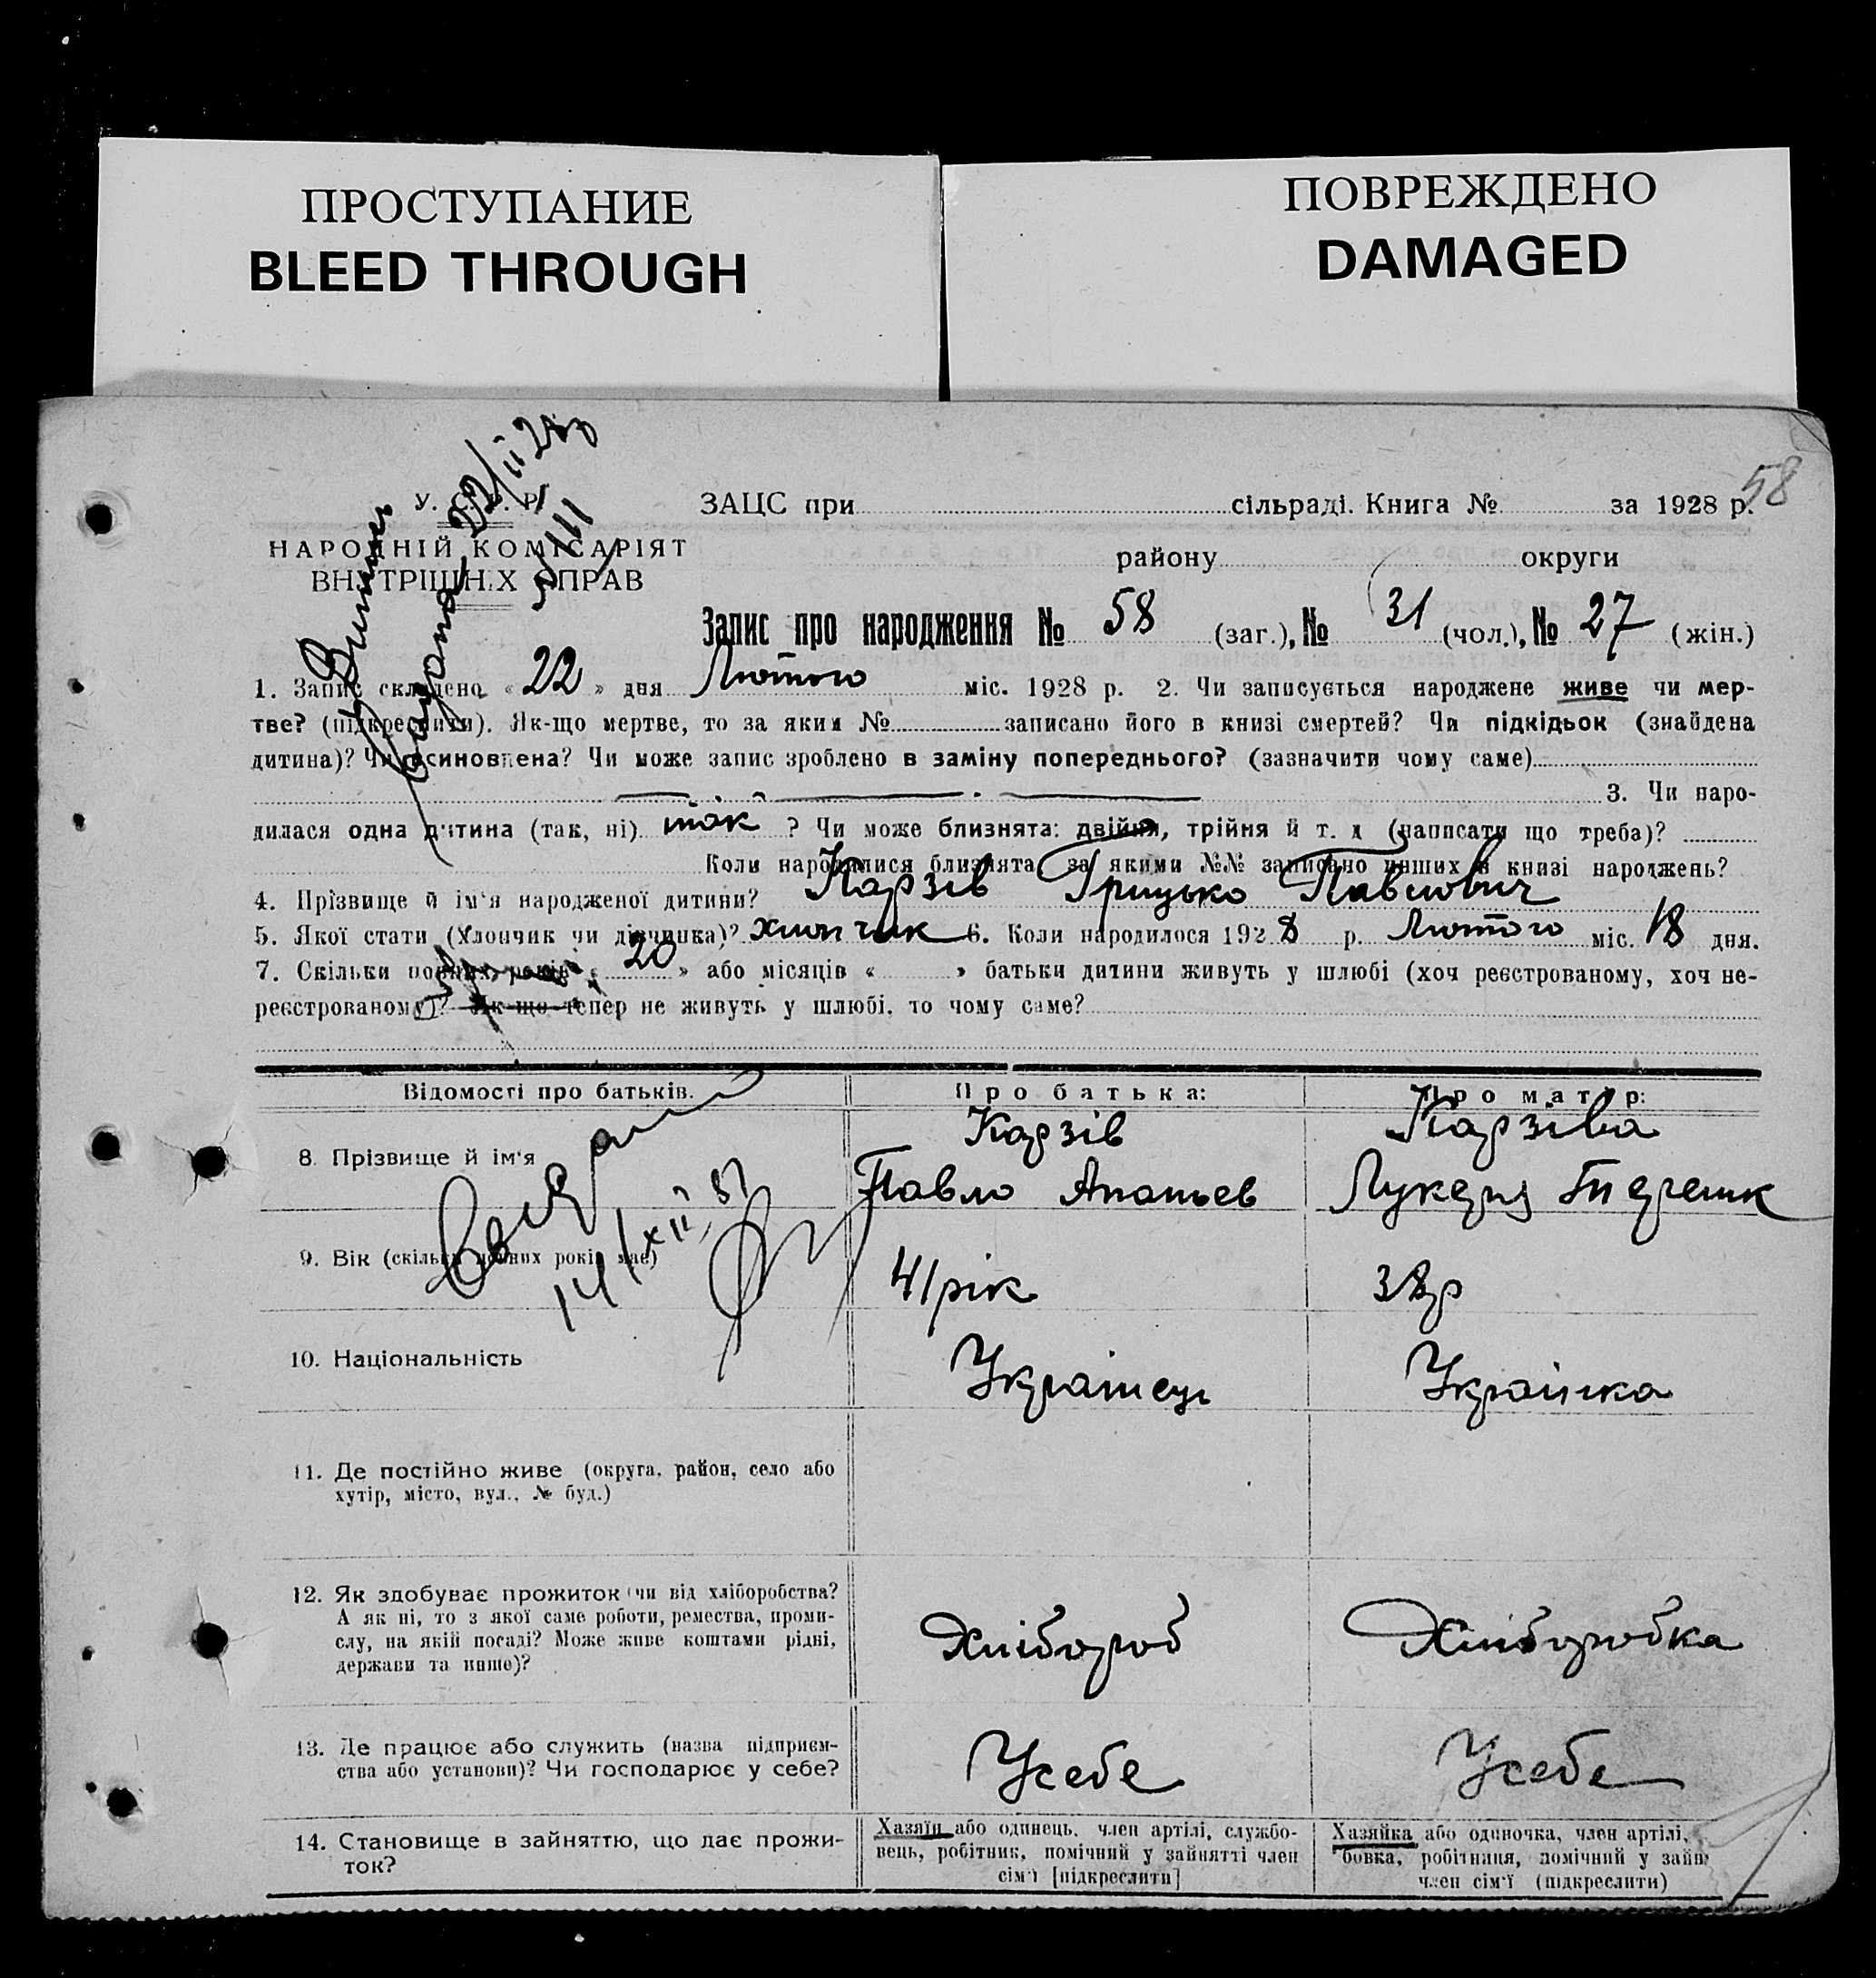 ПРОСТУПАНИЕ
BLEED THROUGH
ПОВРЕЖДЕНО
DAMAGED
58
У. С. Р. Р.
НАРОДНІЙ КОМІСАРІЯТ
ВНУТРІШНІХ СПРАВ
Витяг
22/II 28
ЗАЦС при сільраді. Книга № за 1928 р.
району округи
Запис про народження № 58 (заг.), № 31 (чол.), № 27 (жін.)
1. Запис складено „ 22 » дня Лютого міс. 1928 р. 2. Чи записується народжене живе чи мер-
тве? (підкреслити). Як-що мертве, то за яким № записано його в книзі смертей? Чи підкідьок (знайдена
дитина)? Чи всиновлена? Чи може запис зроблено в заміну попереднього? (зазначити чому саме)
3. Чи наро-
дилася одна дитина (так, ні) так ? Чи може близнята: двійня, трійня й т. д (написати що треба)?
Коли народилися близнята за якими №№ записано инших в книзі народжень?
4. Прізвище й ім'я народженої дитини? Карзів Грицько Павлович
5. Якої стати (Хлопчик чи дівчинка)? хлопчик 6. Коли народилося 1928 р. Лютого міс. 18 дня.
7. Скільки повних років „ 20 » або місяців « » батьки дитини живуть у шлюбі (хоч реєстрованому, хоч не-
реєстрованому)? Як-що тепер не живуть у шлюбі, то чому саме?
Відомості про батьків. Про батька: Про матір:
8. Прізвище й ім'я
Карзів
Павло Ананьев
Карзіва
14/XII
9. Вік (скільки повних років має) 41 рік 38 р
10. Національність Украінець Украінка
11. Де постійно живе (округа, район, село або
хутір, місто, вул., № буд.)
12. Як здобуває прожиток (чи від хліборобства?
А як ні, то з якої саме роботи, ремества, проми-
слу, на якій посаді? Може живе коштами рідні,
держави та инше)?
Хлібороб Хліборобка
13. Де працює або служить (назва підприєм-
ства або установи)? Чи господарює у себе?
Усебе Усебе
14. Становище в зайняттю, що дає прожи-
ток?
Хазяїн або одинець, член артілі, службо-
вець, робітник, помічний у зайнятті член
сім'ї [підкреслити]
Хазяйка або одиночка, член артілі,
бовка, робітниця, помічний у зайн
член сім'ї (підкреслити)